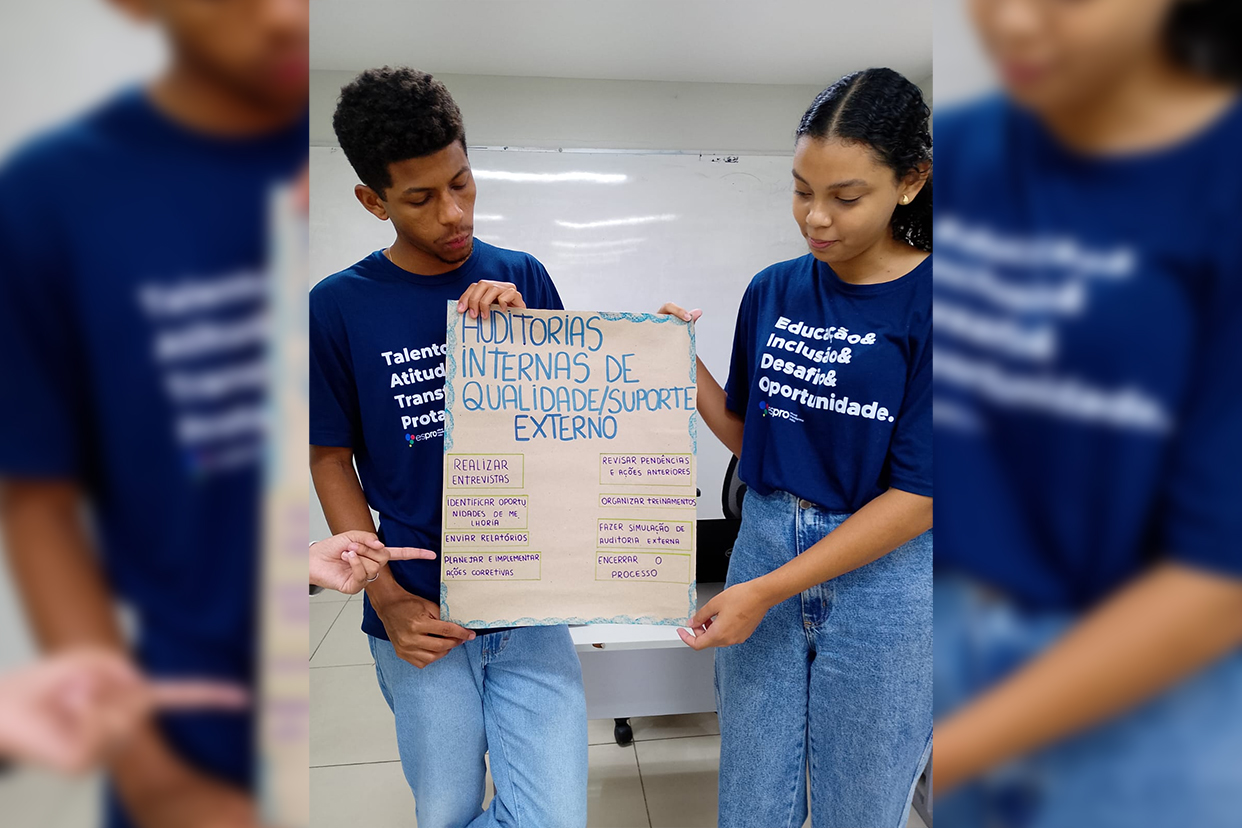 AUDITORIAS
INTERNAS DE
QUALIDADE/SUPORTE
EXTERNO
REALIZAR
ENTREVISTAS
IDENTIFICAR OPORTU
NIDADES DE ME
LHORIA
ENVIAR RELATÓRIOS
PLANEJAR E IMPLEMENTAR
AÇÕES CORRETIVAS
REVISAR PENDÊNCIAS
E AÇÕES ANTERIORES
ORGANIZAR TREINAMENTOS
FAZER SIMULAÇÃO DE
AUDITORIA EXTERNA
ENCERRAR O
PROCESSO
Talento
Atitud
Trans
Prota
espro
Educação&
Inclusão&
Desafio&
Oportunidade.
espro